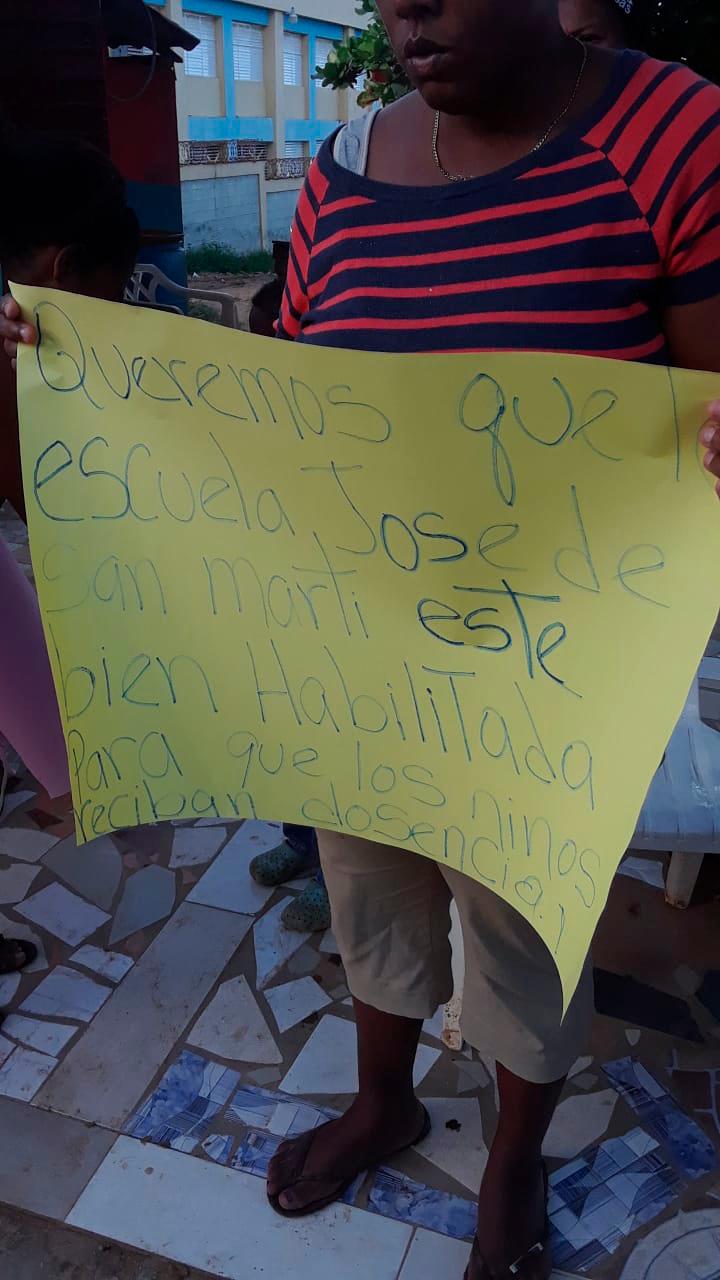 Queremos que l
escuela Jose de
san marti este
bien Habilitada
Para que los ninos
reciban dosencia!